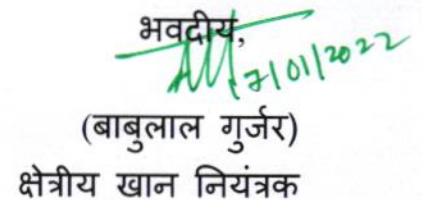 भवदीय,
7/01/2022
(बाबुलाल गुर्जर)
क्षेत्रीय खान नियंत्रक